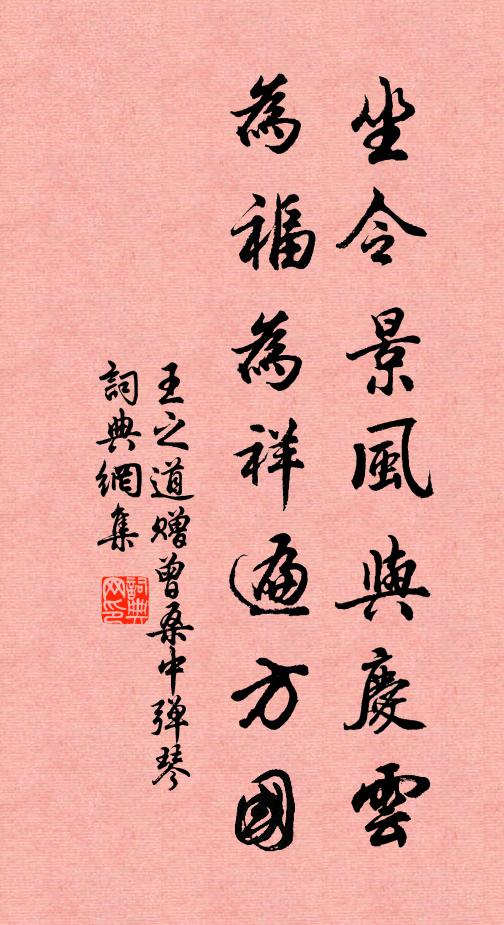 坐令景風與慶雲
為福為祥遍方國
王之道贈曾桑中彈琴
詞典網集
詞典
网印